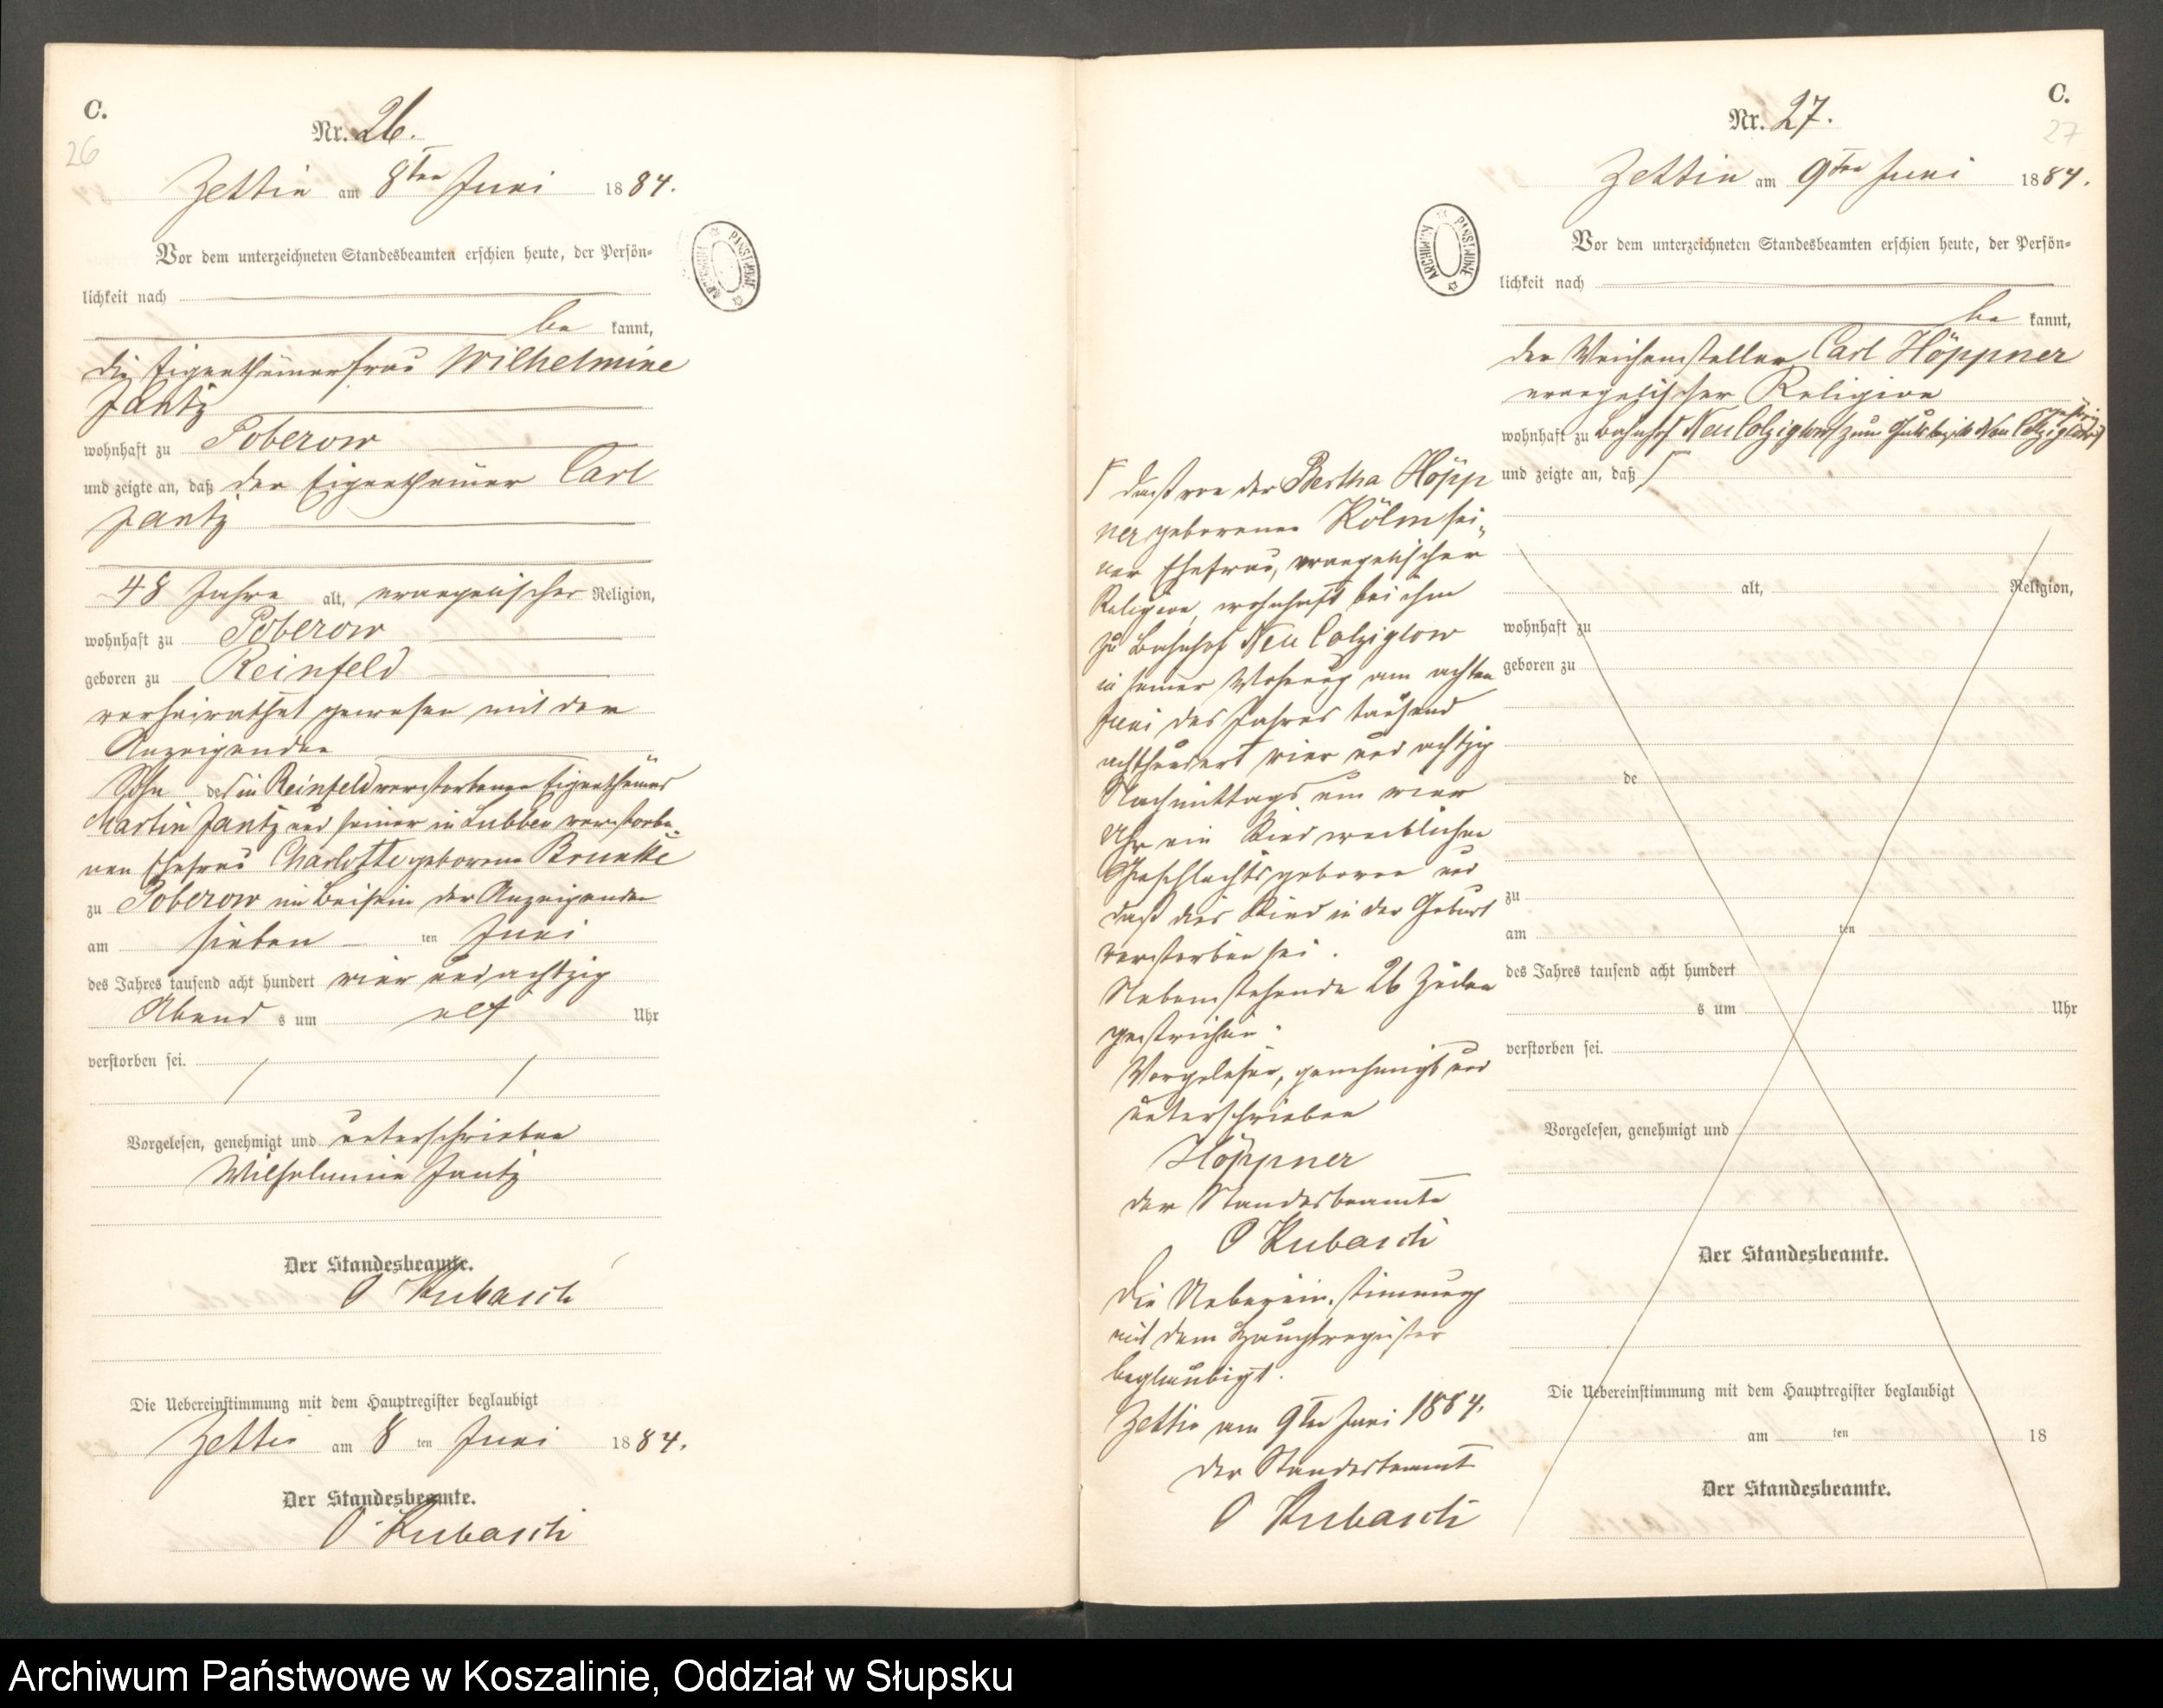 C.
26
Nr. 26.
Zettin am 8ten Juni 1884.
Vor dem unterzeichneten Standesbeamten erschien heute, der Persön=
lichkeit nach
be kannt,
die Eigenthümerfrau Wilhelmine
Jantz
wohnhaft zu Poberow
und zeigte an, daß der Eigenthümer Carl
Jantz
48 Jahre alt, evangelischer Religion,
wohnhaft zu Poberow
geboren zu Reinfeld
verheirathet gewesen mit der
Anzeigenden
Sohn des in Reinfeld verstorbenen Eigenthümers
Martin Jantz und seiner in Lubben verstorbe=
nen Ehefrau Charlotte geborene Brunkke
zu Poberow im Beisein der Anzeigenden
am sieben ten Juni
des Jahres tausend acht hundert vier und achtzig
Abend s um elf Uhr
verstorben sei.
Vorgelesen, genehmigt und unterschrieben
Wilhelmine Jantz
Der Standesbeamte.
O Kubasch
Die Uebereinstimmung mit dem Hauptregister beglaubigt
Zettin am 8 ten Juni 1884.
Der Standesbeamte.
O Kubasch
ARCHIWUM PAŃSTWOWE
C.
27
Nr. 27.
Zettin am 9ten Juni 1884.
Vor dem unterzeichneten Standesbeamten erschien heute, der Persön=
lichkeit nach
be kannt,
der Weichensteller Carl Höppner
evangelischer Religion
wohnhaft zu Bahnhof Neu Colziglow zum Gutsbezirk Neu Colziglow gehörig
und zeigte an, daß
alt, Religion,
wohnhaft zu
geboren zu
de
zu
am ten
des Jahres tausend acht hundert
s um Uhr
verstorben sei.
Vorgelesen, genehmigt und
Der Standesbeamte.
Die Uebereinstimmung mit dem Hauptregister beglaubigt
am ten 18
Der Standesbeamte.
ARCHIWUM PAŃSTWOWE
daß von der Bertha Höpp
ner geborenen Kölm sei=
ner Ehefrau, evangelischer
Religion, wohnhaft bei ihm
zu Bahnhof Neu Colziglow
in seiner Wohnung am achten
Juni des Jahres tausend
achthundert vier und achtzig
Nachmittags um vier
Uhr ein Kind weiblichen
Geschlechts geboren und
daß dies Kind in der Geburt
verstorben sei.
Nebenstehende 26 Zeilen
gestrichen.
Vorgelesen, genehmigt und
unterschrieben
Höppner
der Standesbeamte
O Kubasch
Die Uebereinstimmung
mit dem Hauptregister
beglaubigt.
Zettin am 9ten Juni 1884.
Der Standesbeamte
O Kubasch
Archiwum Państwowe w Koszalinie, Oddział w Słupsku